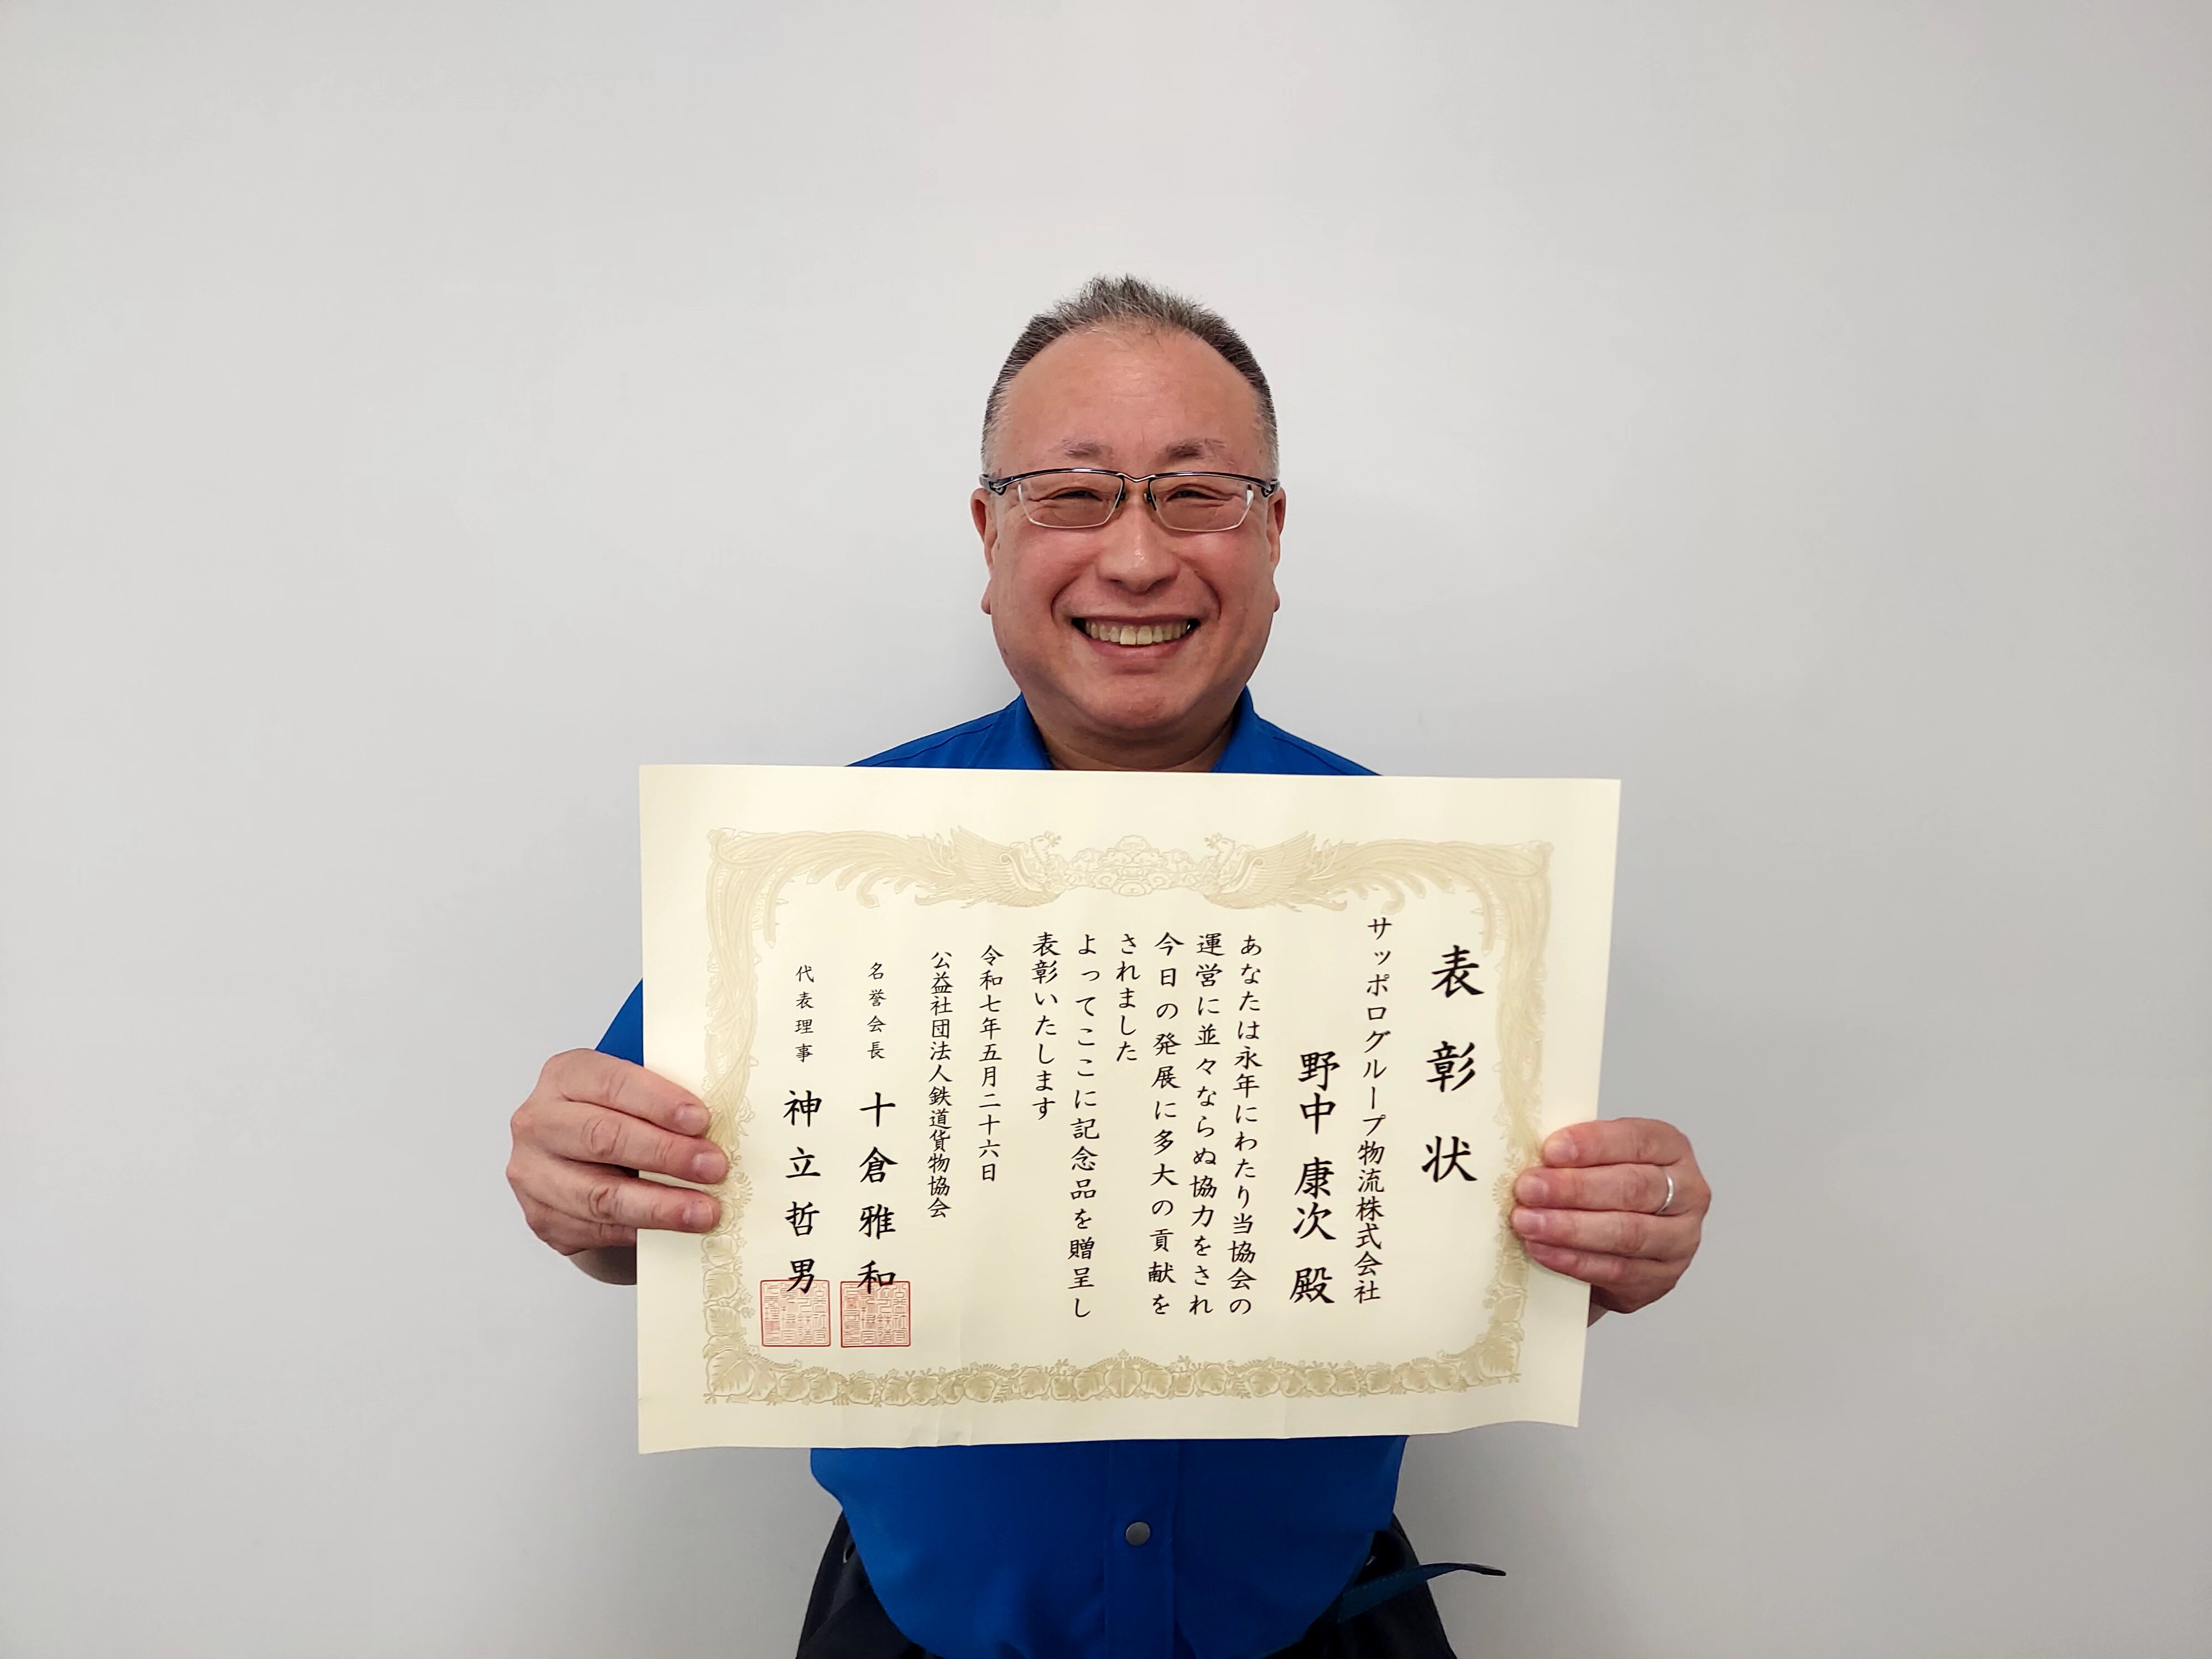 表彰状
サッポログループ物流株式会社
野中 康次 殿
あなたは永年にわたり当協会の
運営に並々ならぬ協力をされ
今日の発展に多大の貢献を
されました
よってここに記念品を贈呈し
表彰いたします
令和七年五月二十六日
公益社団法人鉄道貨物協会
名誉会長 十倉雅和
代表理事 神立哲男